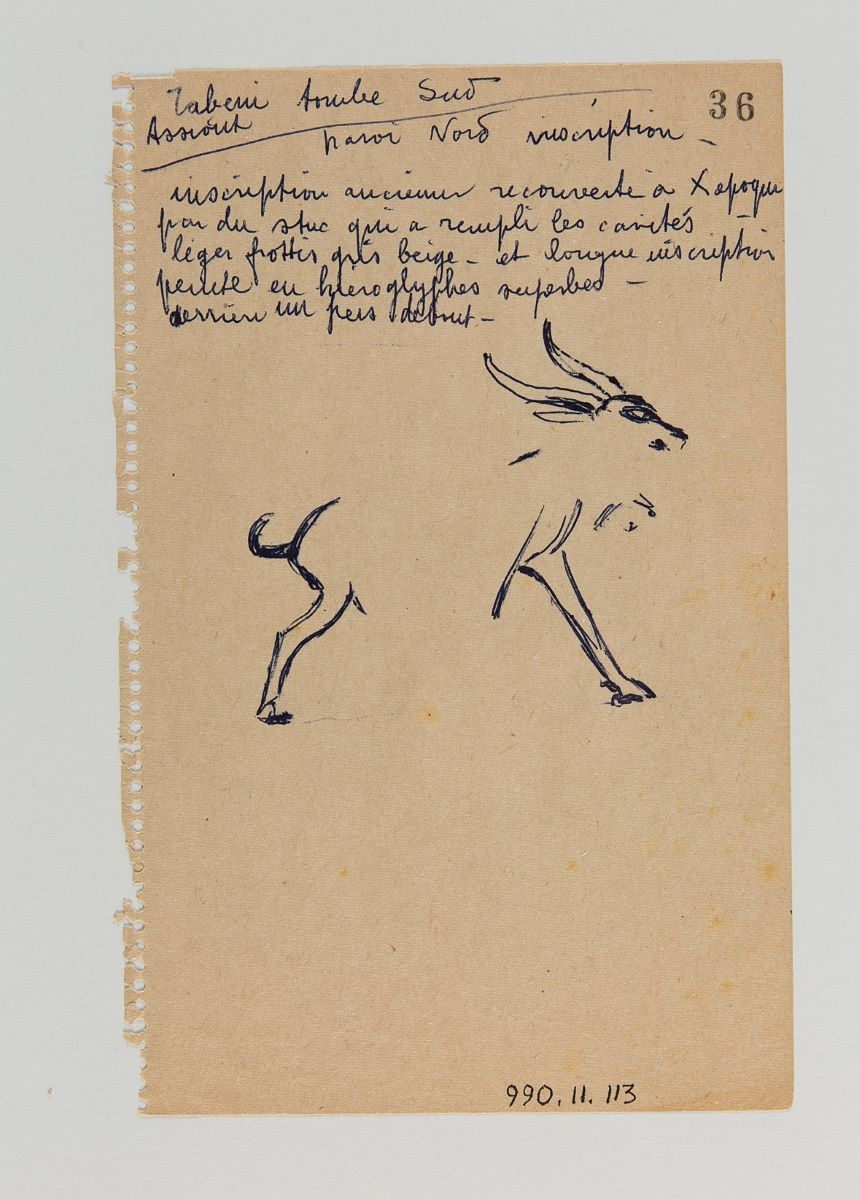 tombe Sud
36
Assiout
paroi Nord inscription -
inscription ancienne recouverte à X epoque
par du stuc qui a rempli les cavités -
léger frottis gris beige - et longue inscription
peinte en hieroglyphes superbes -
derrière un peu debout -
990.11.113